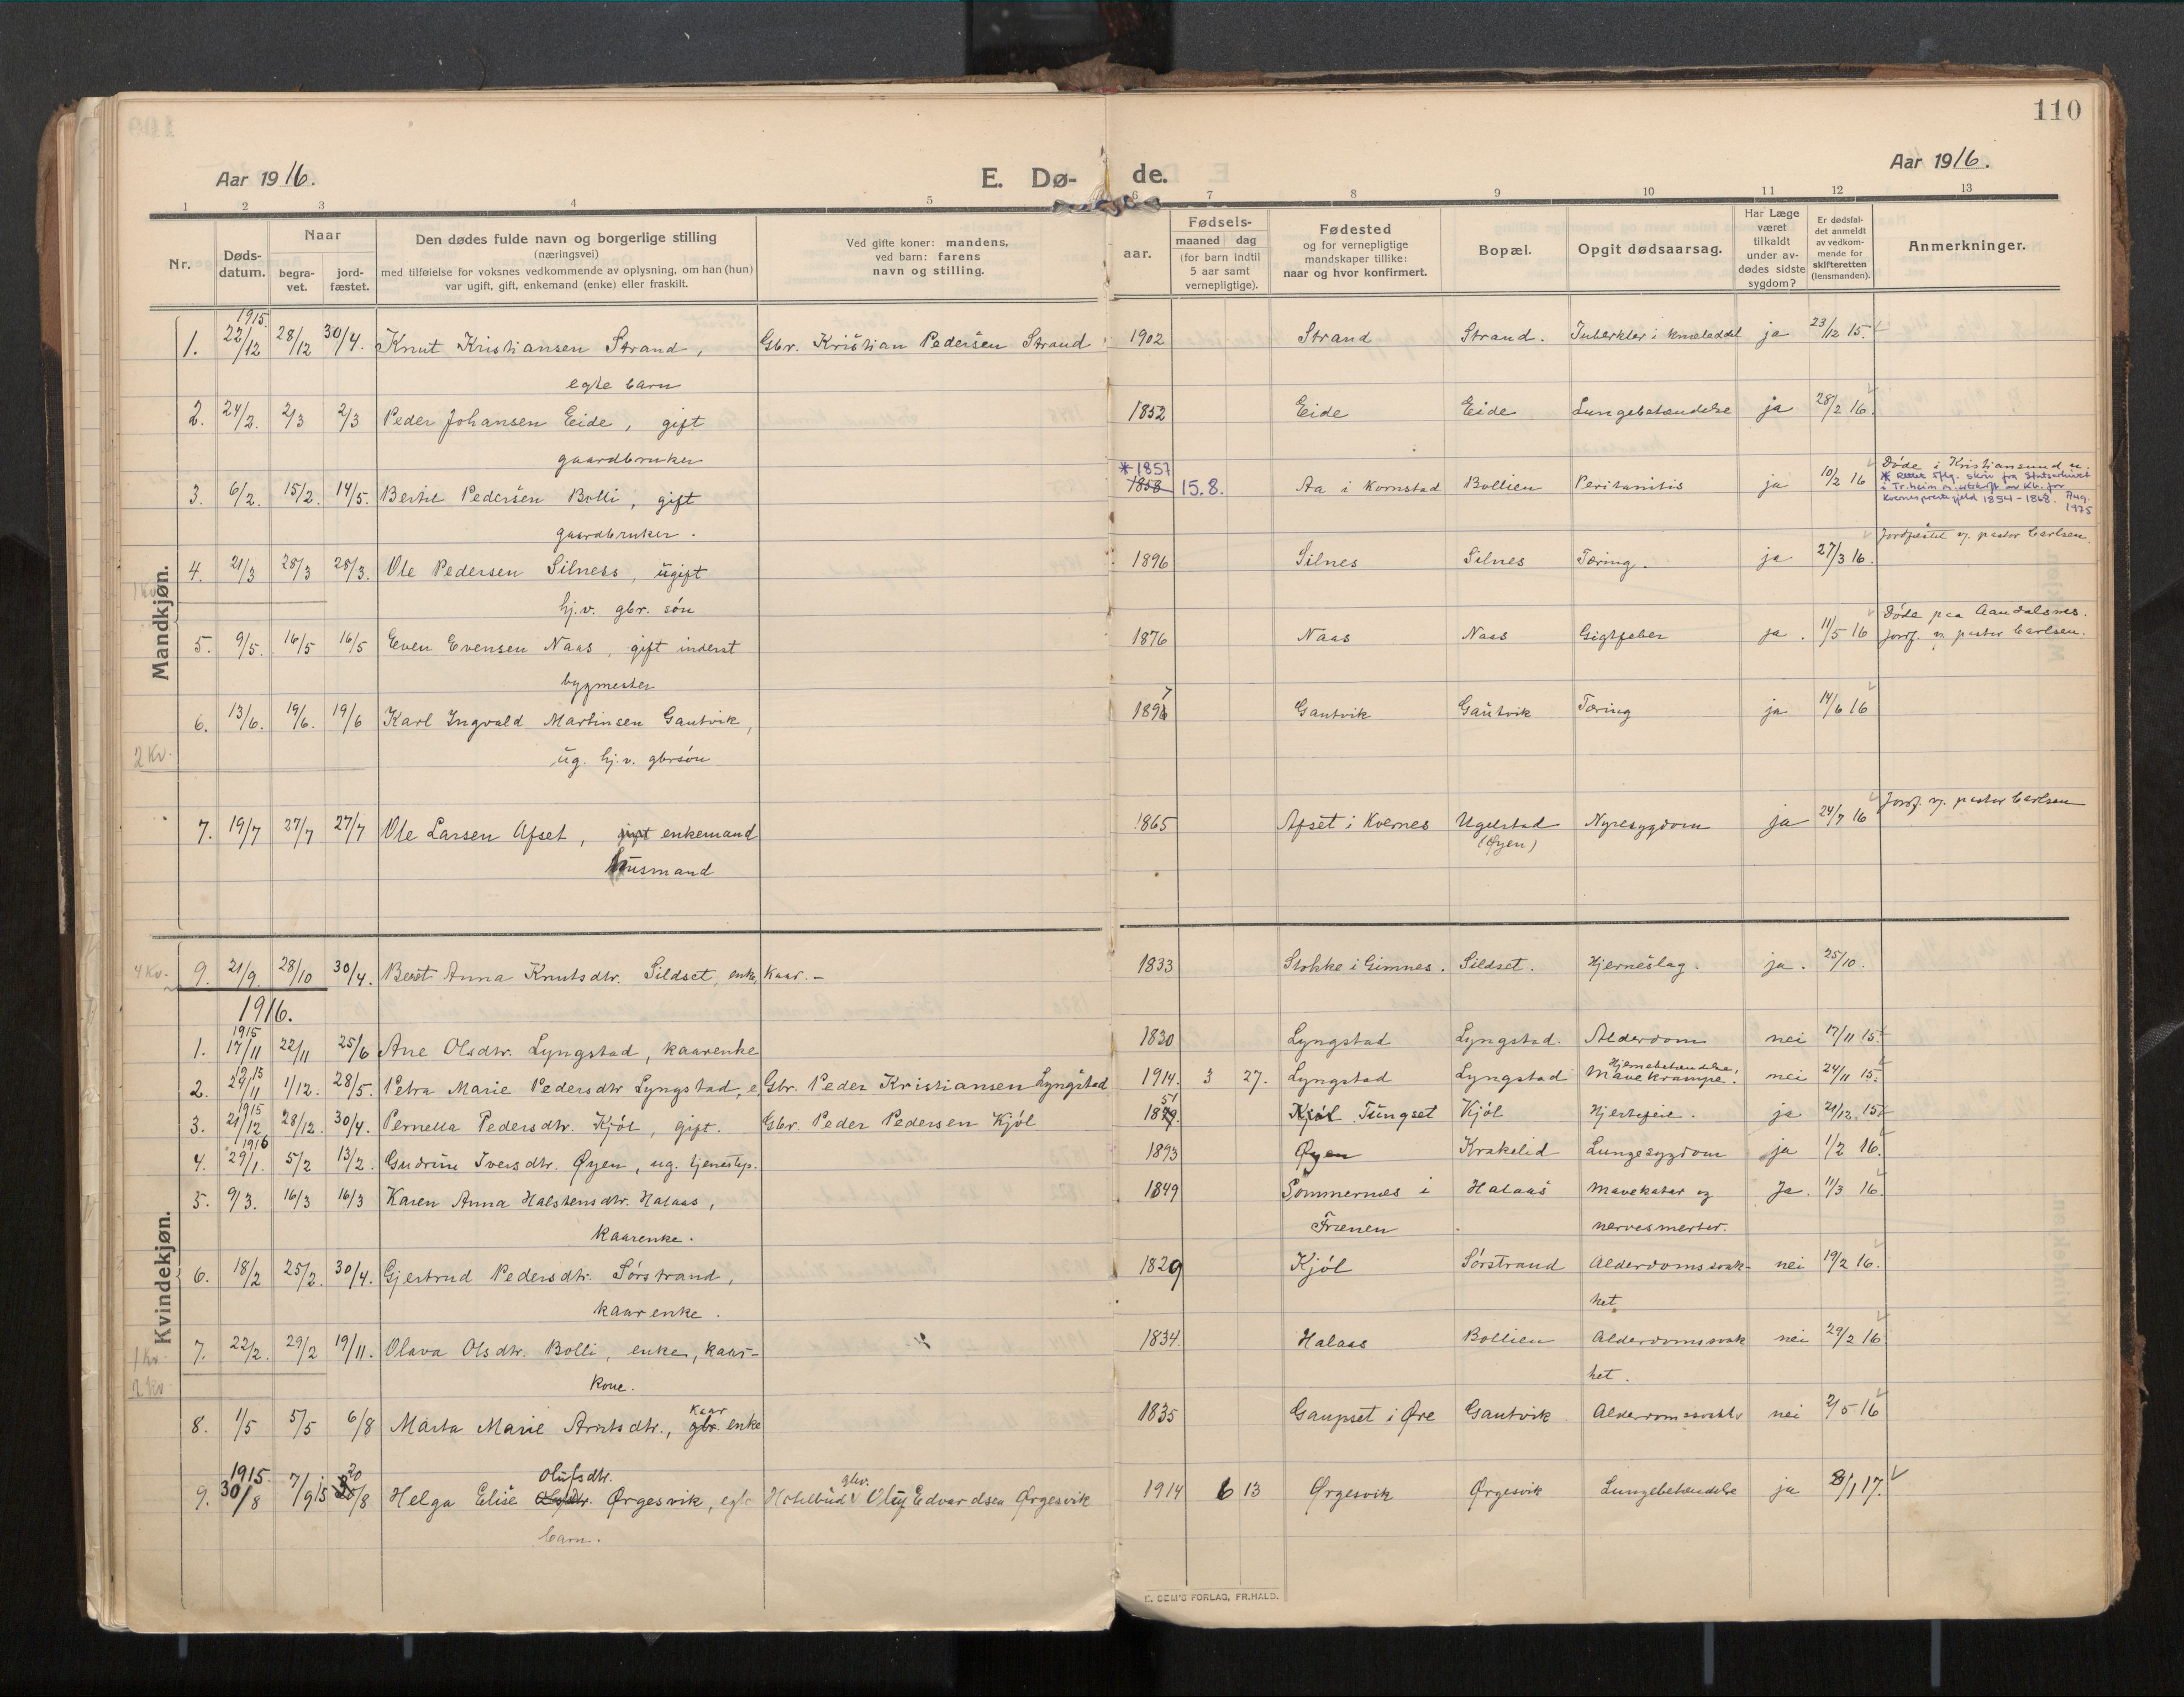 110
Aar 1916.
E. Dø-
de.
Aar 1916.
1 2 3 4 5 6 7 8 9 10 11 12 13
Nr.
Døds-
datum.
Naar
begra-
vet.
jord-
fæstet.
Den dødes fulde navn og borgerlige stilling
(næringsvei)
med tilføielse for voksnes vedkommende av oplysning, om han (hun)
var ugift, gift, enkemand (enke) eller fraskilt.
Ved gifte koner: mandens,
ved barn: farens
navn og stilling.
Fødsels-
aar.
maaned dag
(for barn indtil
5 aar samt
vernepligtige).
Fødested
og for vernepligtige
mandskaper tillike:
naar og hvor konfirmert.
Bopæl.
Opgit dødsaarsag.
Har Læge
været
tilkaldt
under av-
dødes sidste
sygdom?
Er dødsfal-
det anmeldt
av vedkom-
mende for
skifteretten
(lensmanden).
Anmerkninger.
Mandkjøn.
1915.
1. 22/12 28/12 30/4. Knut Kristiansen Strand, Gbr. Kristian Pedersen Strand 1902 Strand Strand. Tuberkler i knæleddet ja 23/12 15.
egte barn
2. 24/2. 2/3 2/3 Peder Johansen Eide, gift 1852 Eide Eide Lungebetændelse ja 28/2 16.
gaardbruker
* 1857
3. 6/2. 15/2. 14/5. Bertil Pedersen Bolli, gift 1858 15.8. Aa i Kornstad Bollien Peritonitis ja 10/2 16
Døde i Kristiansund n.
* Rettet iflg. skriv fra Statsarkivet
i Tr.heim m. utskrift av Kb. for
Kvernes prestegjeld 1854-1868. Aug.
1975
gaardbruker.
Jordfæstet v. pastor Carlsen.
4. 21/3 28/3 28/3. Ole Pedersen Silness, ugift 1896 Silnes Silnes Tæring. ja 27/3 16.
1 Kv.
hj.v. gbr. søn
5. 9/5. 16/5 16/5 Even Evensen Naas, gift inderst 1876 Naas Naas Gigtfeber ja. 11/5 16
Døde paa Aandalsnes.
jordf. v. pastor Carlsen.
bygmester
6. 13/6. 19/6. 19/6 Karl Ingvald Martinsen Gautvik, 1897 Gautvik Gautvik Tæring ja 14/6 16
2 Kv.
ug. hj.v. gbrsøn
7. 19/7 27/7 27/7 Ole Larsen Afset, gift enkemand 1865 Afset i Kvernes Ugelstad Nyresygdom ja 24/7 16
(Øyen)
Jordf. v. pastor Carlsen
husmand
Kvindekjøn.
4 Kv.
9. 21/9. 28/10 30/4. Berit Anna Knutsdtr. Sildset, enke, Kaar.- 1833 Stokke i Gimnes. Sildset. Hjerneslag. ja. 25/10.
1916.
1915
1. 17/11 22/11 25/6 Ane Olsdtr. Lyngstad, kaarenke 1830 Lyngstad Lyngstad. Alderdom nei 17/11 15.
1915
2. 24/11 1/12. 28/5. Petra Marie Pedersdtr Lyngstad, e. Gbr. Peder Kristiansen Lyngstad 1914. 3 27. Lyngstad Lyngstad Hjernebetændelse, Mavekrampe. nei 24/11 15.
1915
3. 21/12 28/12. 30/4. Pernella Pedersdtr. Kjøl, gift. Gbr. Peder Pedersen Kjøl 1851 Kjøl Tungset Kjøl Hjertefeil. ja 21/12 15.
1916
4. 29/1. 5/2 13/2. Gudrun Iversdtr. Øyen, ug. tjenestep. 1893 Øyen Krakelid Lungesygdom ja 1/2 16.
5. 9/3. 16/3 16/3 Karen Anna Halstensdtr. Halaas, 1849 Sommernes i Halaas Mavekatar og Ja. 11/3 16.
kaarenke. Frænen nervesmerter.
6. 18/2 25/2. 30/4. Gjertrud Pedersdtr. Sørstrand, 1829 Kjøl Sørstrand Alderdomssvak- nei 19/2 16.
kaarenke. het
7. 22/2. 29/2 19/11. Olava Olsdtr. Bolli, enke, kaar- 1834. Halaas Bollien Alderdomssvak nei 29/2 16
1 Kv.
2 Kv
kone. het.
8. 1/5 5/5 6/8 Marta Marie Arntsdtr., gbr. Kaar enke 1835 Gaupset i Øre Gautvik Alderdomssvakh. nei 2/5 16
1915.
9. 30/8 7/9 15 20/8 Helga Elise Olufsdtr. Ørgesvik, egte Hotelbud v Oluf Edvardsen Ørgesvik 1914 6 13 Ørgesvik Ørgesvik Lungebetændelse ja 8/1 17.
barn.
FORLAG, FR.HALD.